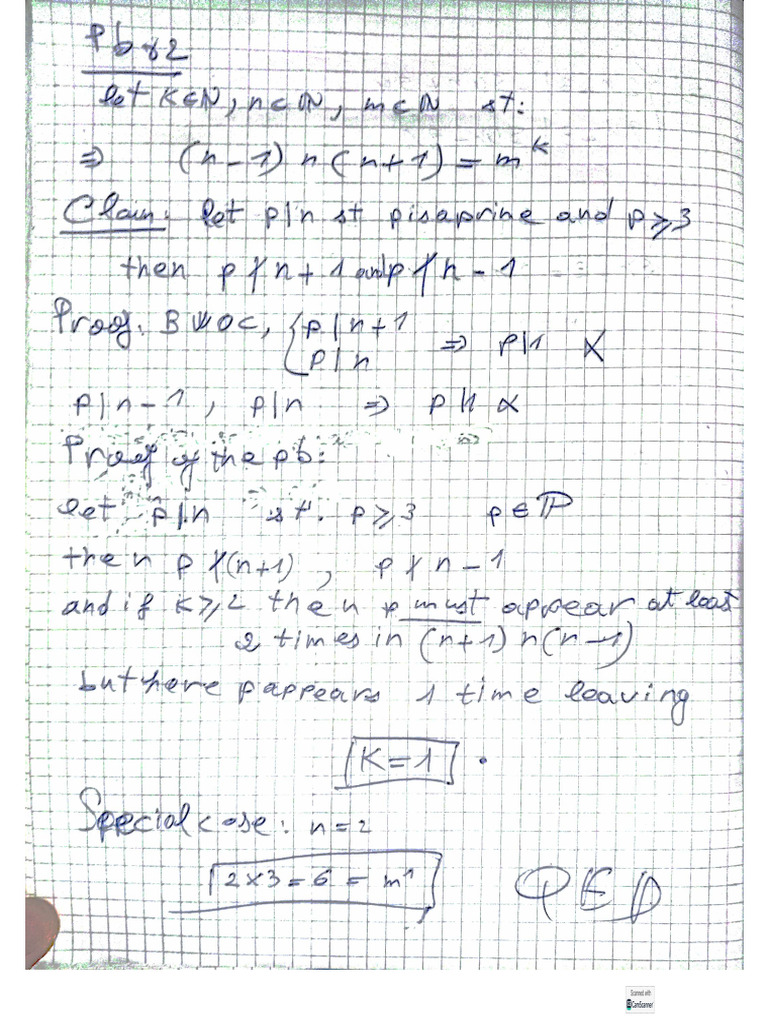 Pb 82
let K∈ℕ, n∈ℕ, m∈ℕ st:
⇒ (n-1) n (n+1) = m^k
Claim: let p|n st p is a prime and p⩾3
then p∤n+1 and p∤n-1
Proof: BWOC, {p|n+1
p|n ⇒ p|1 X
p|n-1, p|n ⇒ p|1 X
Proof of the pb:
let p|n st. p⩾3 p∈ℙ
then p∤(n+1), p∤n-1
and if K⩾2 then p must appear at least
2 times in (n+1) n(n-1)
but here p appears 1 time leaving
K=1.
Special case: n=2
2×3=6=m^1
QED
Scanned with
CamScanner